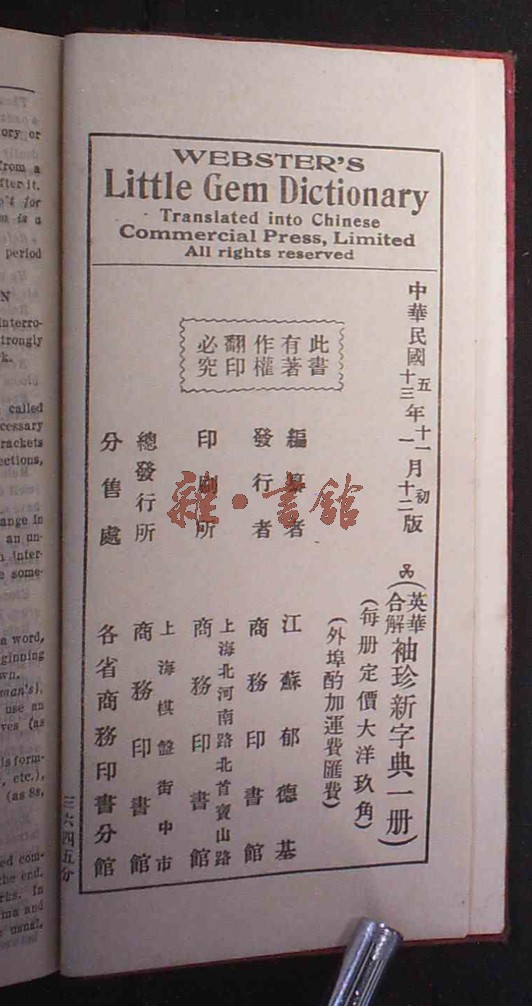 ory or
from a
fter it.
n't for
n is a
period
N
nterro-
trongly
k.
called
cessary
rackets
ections,
ange in
an un-
n inter-
e some-
a word,
ginning
wn.
man's),
use an
ves (as
is form-
etc.),
(as 8s,
ed com-
the end.
rks. In
ma and
usual.
WEBSTER'S
Little Gem Dictionary
Translated into Chinese
Commercial Press, Limited
All rights reserved
中華民國五年十一月初版
十三年一月十二版
此書
有著
作權
翻印
必究
(英華合解袖珍新字典一册)
(每册定價大洋玖角)
(外埠酌加運費匯費)
編纂者 江蘇郁德基
發行者 商務印書館
印刷所 上海北河南路北首寶山路
商務印書館
總發行所 上海棋盤街中市
商務印書館
分售處 各省商務印書分館
三六四五分
雜·書館